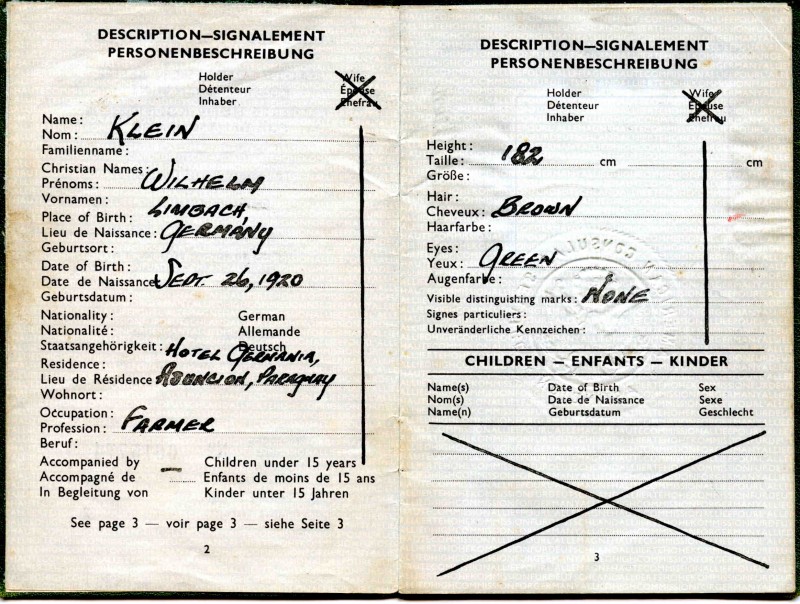 DESCRIPTION—SIGNALEMENT
PERSONENBESCHREIBUNG
Holder Wife
Détenteur Épouse
Inhaber Ehefrau
Name:
Nom: KLEIN
Familienname:
Christian Names:
Prénoms: WILHELM
Vornamen:
Place of Birth: LIMBACH,
Lieu de Naissance: GERMANY
Geburtsort:
Date of Birth:
Date de Naissance SEPT. 26, 1920
Geburtsdatum:
Nationality: German
Nationalité: Allemande
Staatsangehörigkeit: Deutsch
HOTEL GERMANIA,
Residence:
Lieu de Résidence ASUNCION, PARAGUAY
Wohnort:
Occupation:
Profession: FARMER
Beruf:
Accompanied by — Children under 15 years
Accompagné de Enfants de moins de 15 ans
In Begleitung von Kinder unter 15 Jahren
See page 3 — voir page 3 — siehe Seite 3
2
DESCRIPTION—SIGNALEMENT
PERSONENBESCHREIBUNG
Holder Wife
Détenteur Épouse
Inhaber Ehefrau
Height:
Taille: 182 cm cm
Größe:
Hair:
Cheveux: BROWN
Haarfarbe:
Eyes:
Yeux: GREEN
Augenfarbe:
Visible distinguishing marks: NONE
Signes particuliers:
Unveränderliche Kennzeichen:
CHILDREN — ENFANTS — KINDER
Name(s) Date of Birth Sex
Nom(s) Date de Naissance Sexe
Name(n) Geburtsdatum Geschlecht
3